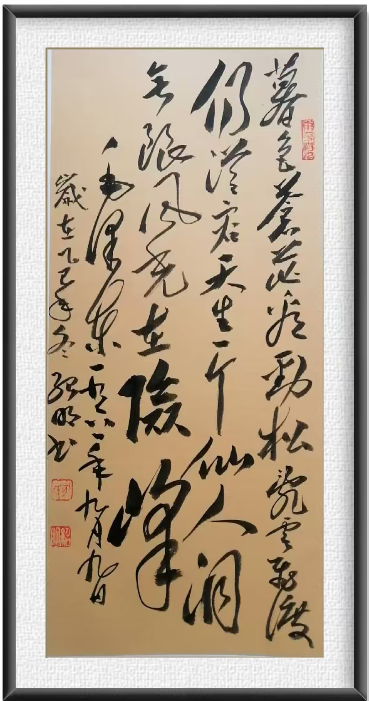 暮色蒼茫看勁松乱云飞渡
仍從容天生一个仙人洞
无限风光在險峰
毛泽东一九六一年九月九日
歲在乙巳年冬 明书